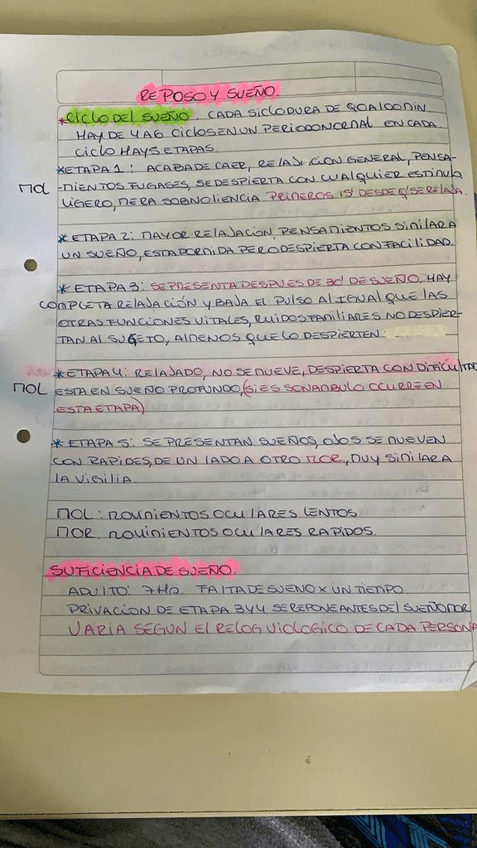 REPOSO Y SUEÑO.
*CICLO DEL SUEÑO. CADA SICLO DURA DE 90 A 100 MIN
HAY DE 4 A 6 CICLOS EN UN PERIODO NORMAL EN CADA
CICLO HAY 5 ETAPAS.
*ETAPA 1: ACABA DE CAER, RELAJACION GENERAL, PENSA-
MOL -MIENTOS FUGASES, SE DESPIERTA CON CUALQUIER ESTIMULO
LIGERO, MERA SOBNOLIENCIA. PRIMEROS 15' DESDE Q' SE RELAJA.
*ETAPA 2: MAYOR RELAJACION, PENSAMIENTOS SIMILAR A
UN SUEÑO, ESTA DORMIDA PERO DESPIERTA CON FACILIDAD.
*ETAPA 3: SE PRESENTA DESPUES DE 30' DE SUEÑO. HAY
COMPLETA RELAJACIÓN Y BAJA EL PULSO AL IGUAL QUE LAS
OTRAS FUNCIONES VITALES, RUIDOS FAMILIARES NO DESPIER-
TAN AL SUJETO, A MENOS QUE LO DESPIERTEN
*ETAPA 4: RELAJADO, NO SE MUEVE, DESPIERTA CON DIFICULTAD
MOL ESTA EN SUEÑO PROFUNDO, (SI ES SONANBULO OCURRE EN
ESTA ETAPA)
*ETAPA 5: SE PRESENTAN SUEÑOS, OJOS SE MUEVEN
CON RAPIDES, DE UN LADO A OTRO MOR, MUY SIMILAR A
LA VIGILIA.
MOL: MOVIMIENTOS OCULARES LENTOS
MOR. MOVIMIENTOS OCULARES RAPIDOS.
SUFICIENCIA DE SUEÑO.
ADULTO: 7 HO. FALTA DE SUEÑO X UN TIEMPO
PRIVACION DE ETAPA 3 Y 4 SE REPONE ANTES DEL SUEÑO MOR
VARIA SEGUN EL RELOG VIOLOGICO DE CADA PERSONA